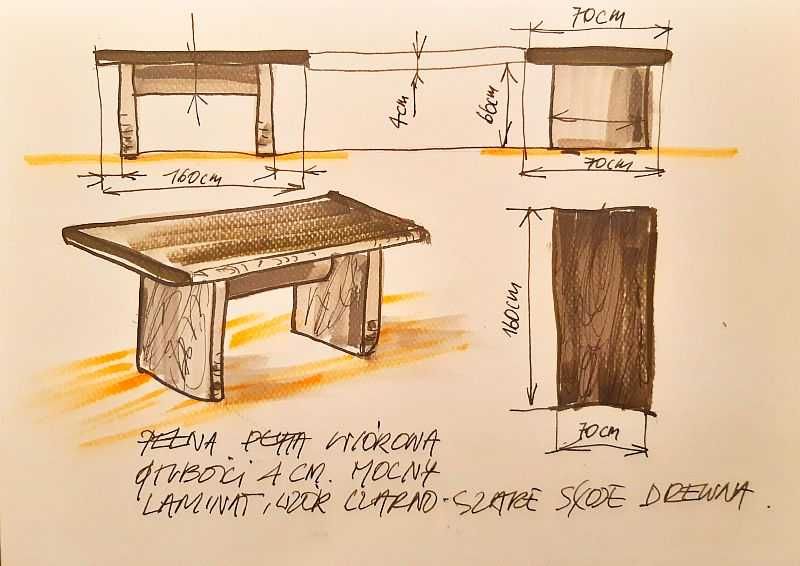 70cm
4cm
66cm
160cm
70cm
160cm
70cm
PEŁNA PŁYTA WIÓROWA
GRUBOŚCI 4 CM. MOCNY
LAMINAT, WZÓR CZARNO-SZARE SŁOJE DREWNA.